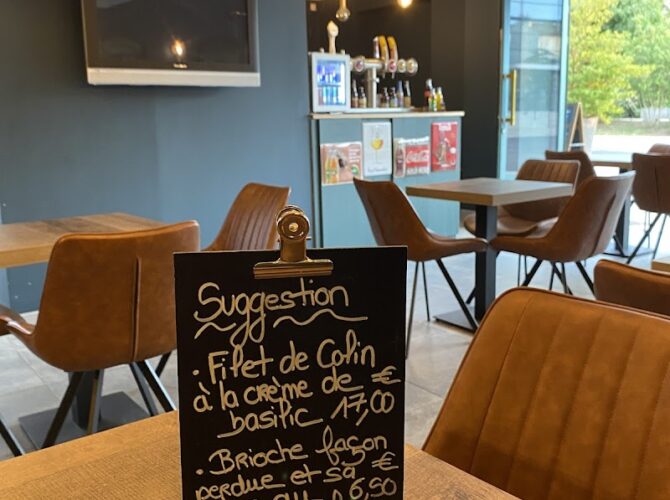 Suggestion
• Filet de Colin
à la crème de €
basilic 17,00
• Brioche façon
perdue et sa €
6,50
Coca-Cola